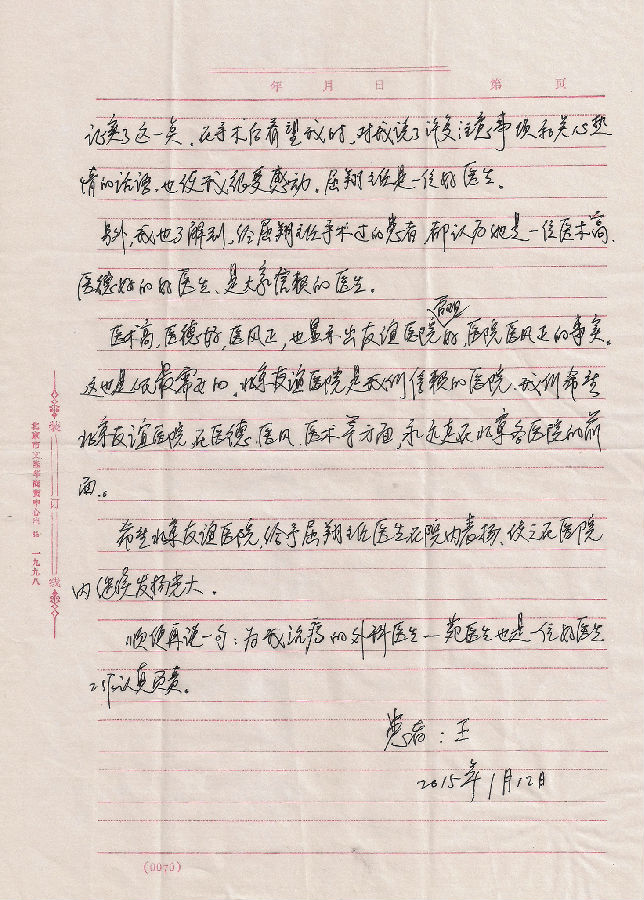 年 月 日 第 页
证实了这一点。在手术后看望我时，对我说了许多注意事项和关心热
情的话语，也使我很受感动。屈翔主任是一位好医生。
另外，我也了解到，经屈翔主任手术过的患者，都认为她是一位医术高、
医德好的好医生、是大家信赖的医生。
医术高，医德好，医风正，也显示出友谊医院管理好，医院医风正的事实。
这也是 的。北京友谊医院是我们信赖的医院。我们希望
北京友谊医院，在医德、医风、医术等方面，永远走在北京各医院的前
面。
希望北京友谊医院，给予屈翔主任医生在院内表扬，使之在医院
内继续发扬光大。
顺便再说一句：为我治病的外科医生—范医生也是一位好医生
工作认真负责。
患者：王
2015年1月12日
装 订 线
一九九八
(0070)